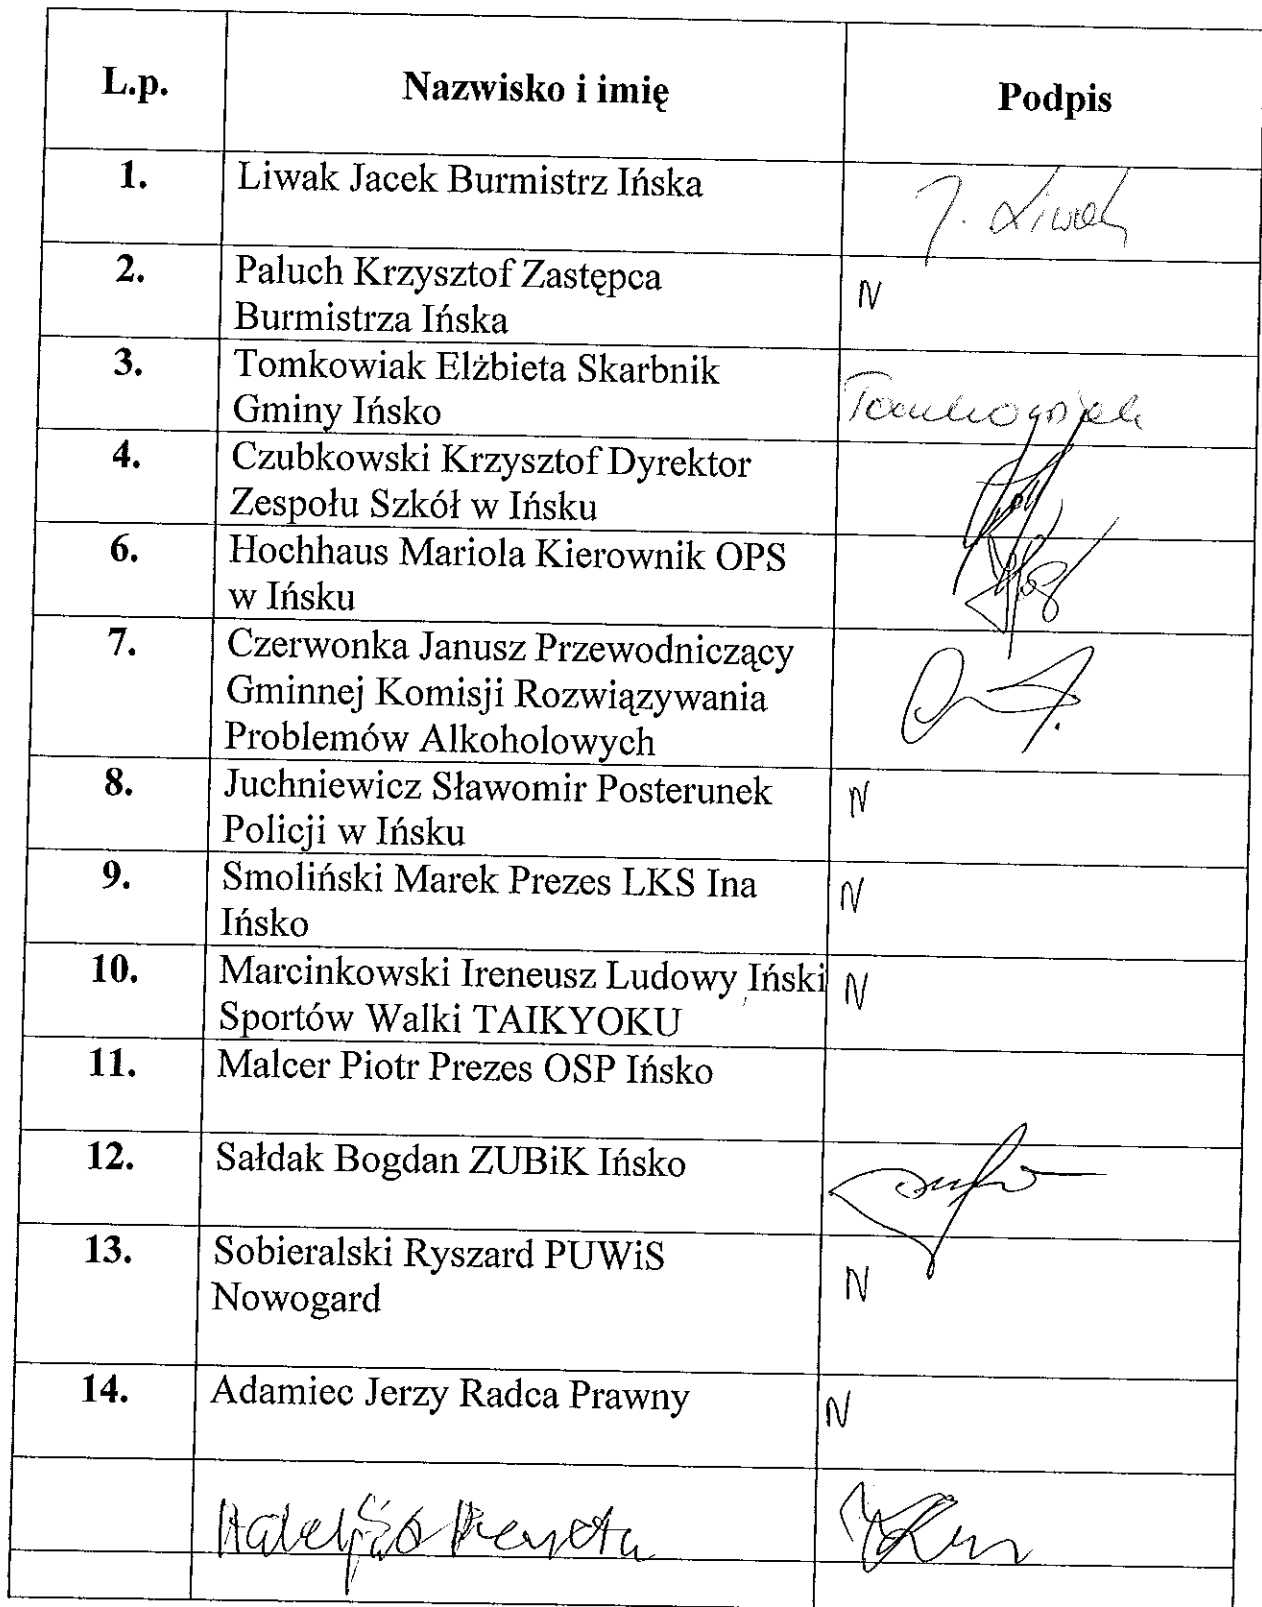 L.p. Nazwisko i imię Podpis
1. Liwak Jacek Burmistrz Ińska J. Liwak
2. Paluch Krzysztof Zastępca N
Burmistrza Ińska
3. Tomkowiak Elżbieta Skarbnik
Gminy Ińsko
4. Czubkowski Krzysztof Dyrektor
Zespołu Szkół w Ińsku
6. Hochhaus Mariola Kierownik OPS
w Ińsku
7. Czerwonka Janusz Przewodniczący
Gminnej Komisji Rozwiązywania
Problemów Alkoholowych
8. Juchniewicz Sławomir Posterunek N
Policji w Ińsku
9. Smoliński Marek Prezes LKS Ina N
Ińsko
10. Marcinkowski Ireneusz Ludowy Iński N
Sportów Walki TAIKYOKU
11. Malcer Piotr Prezes OSP Ińsko
12. Sałdak Bogdan ZUBiK Ińsko
13. Sobieralski Ryszard PUWiS N
Nowogard
14. Adamiec Jerzy Radca Prawny N